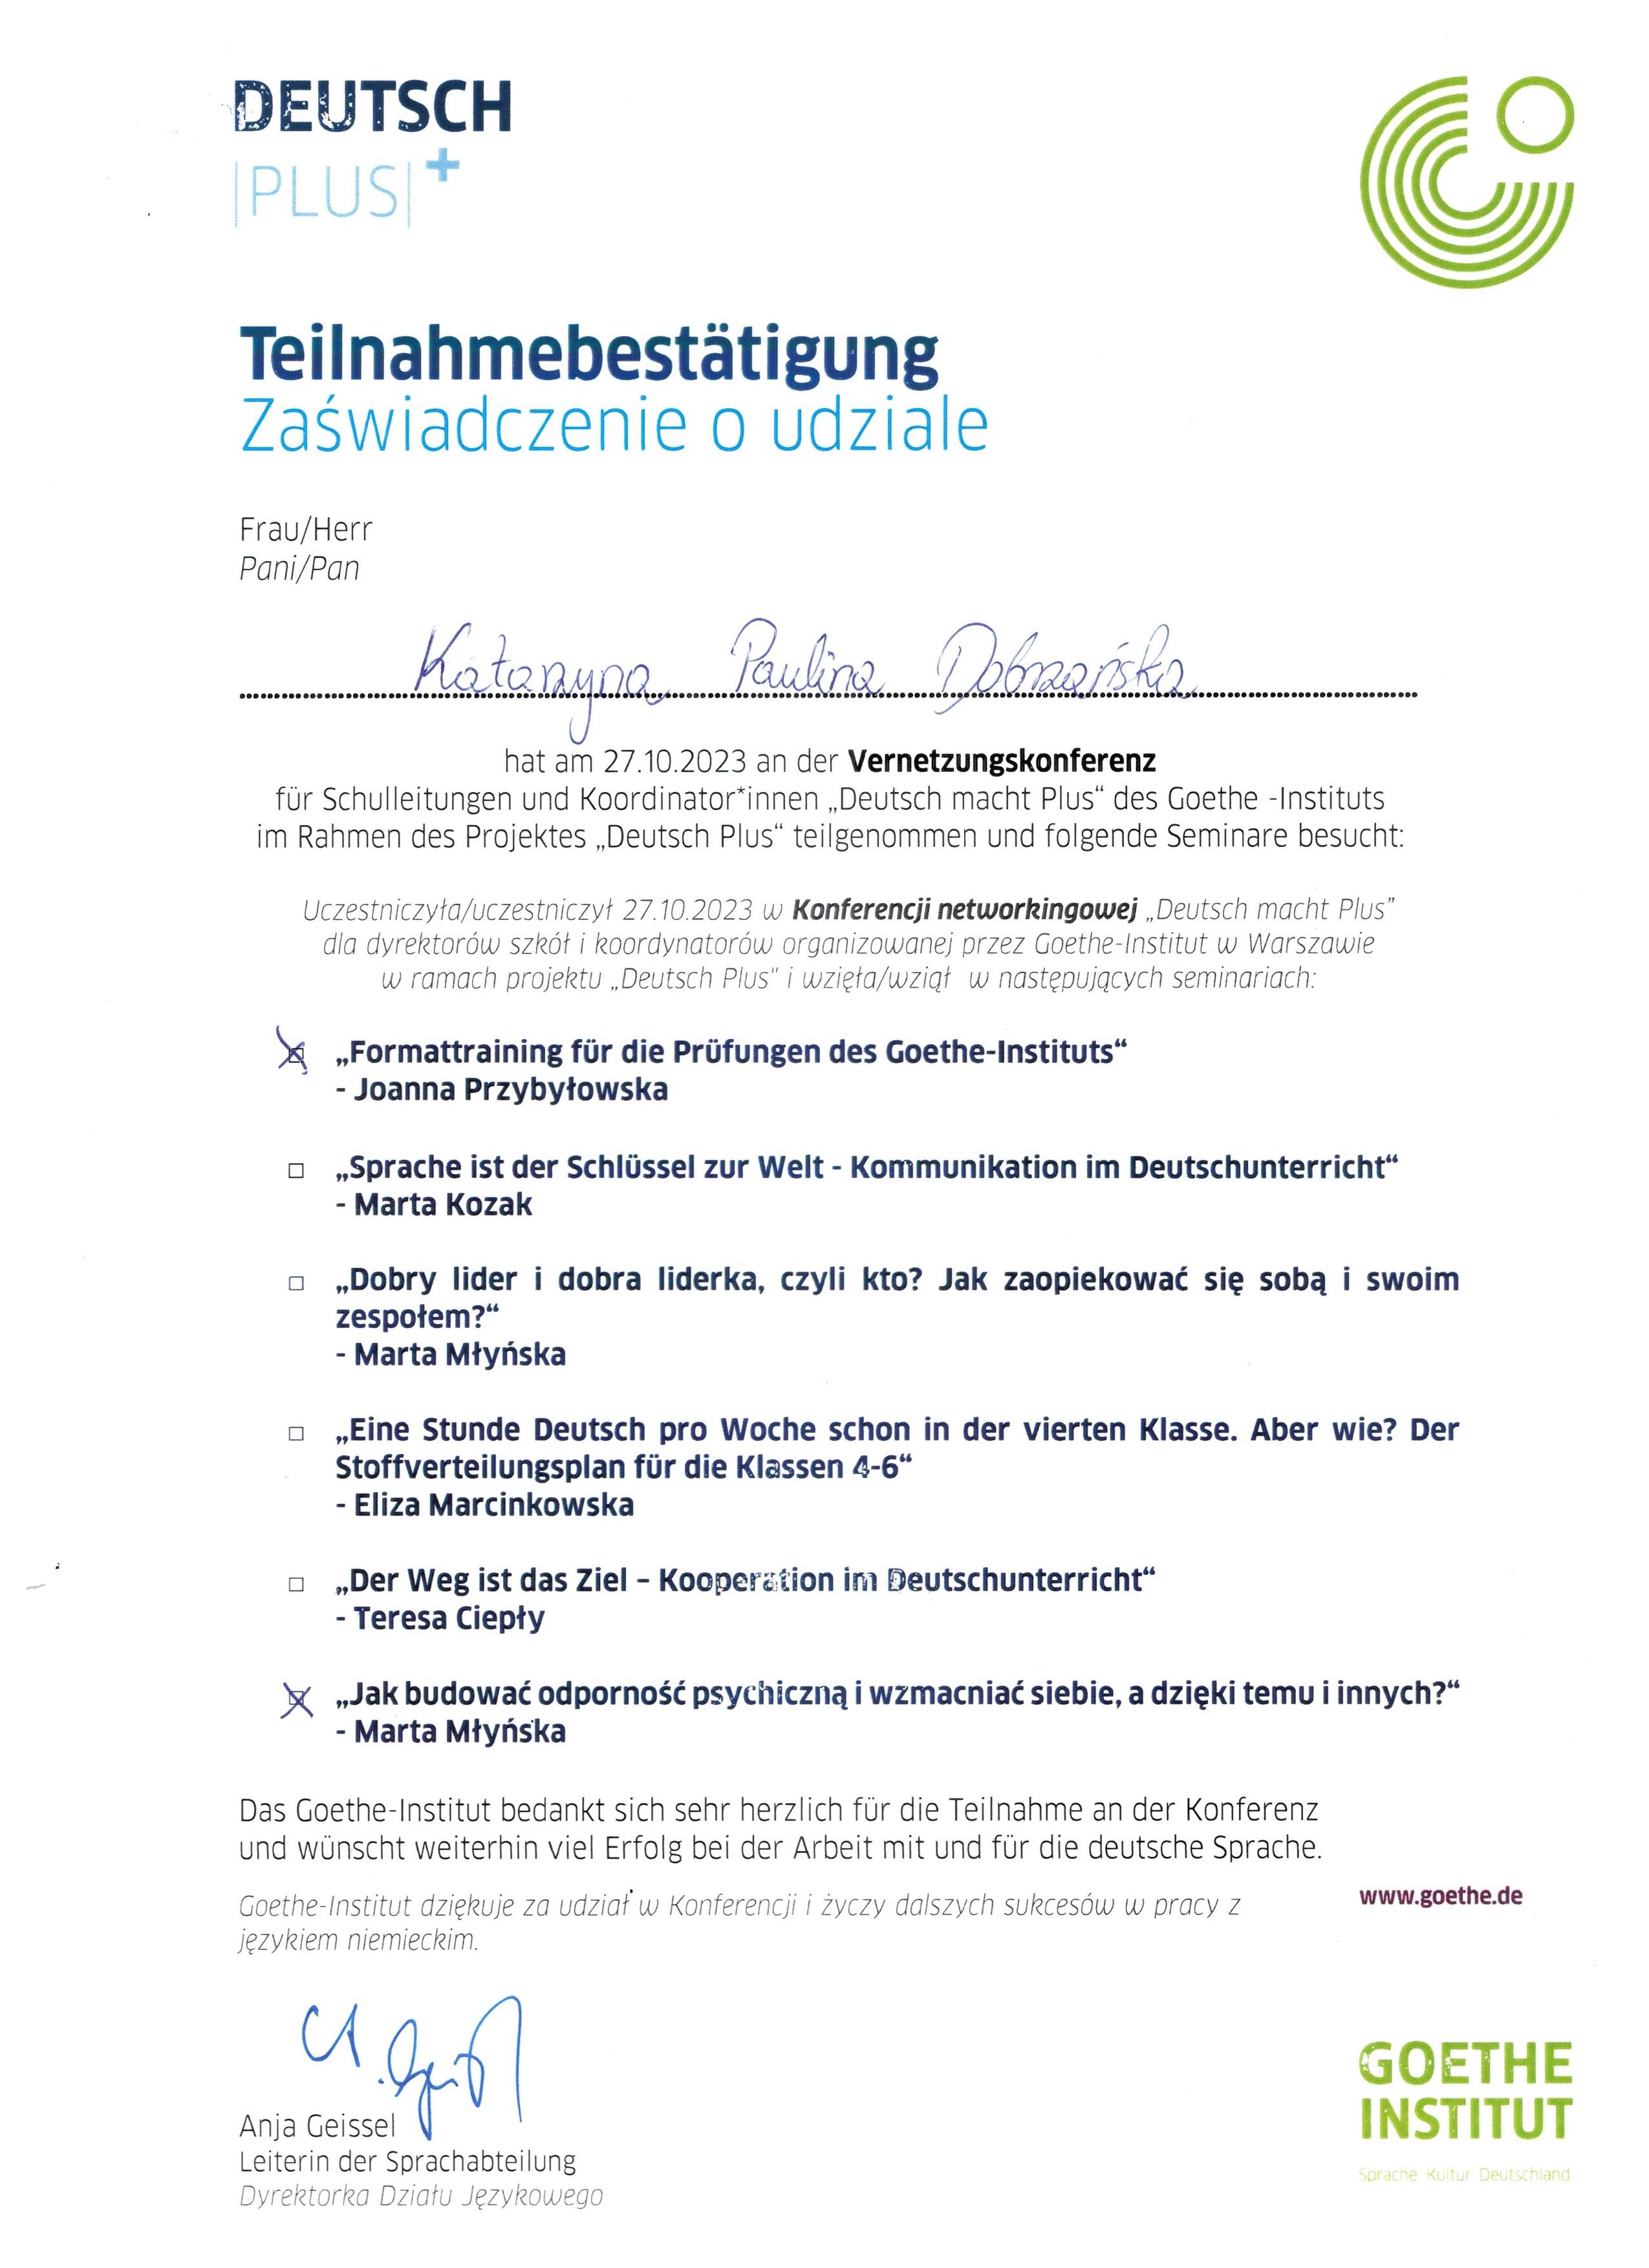 DEUTSCH
|PLUS|+
Teilnahmebestätigung
Zaświadczenie o udziale
Frau/Herr
Pani/Pan
Katarzyna Paulina Dobrzańska
hat am 27.10.2023 an der Vernetzungskonferenz
für Schulleitungen und Koordinator*innen „Deutsch macht Plus“ des Goethe -Instituts
im Rahmen des Projektes „Deutsch Plus“ teilgenommen und folgende Seminare besucht:
Uczestniczyła/uczestniczył 27.10.2023 w Konferencji networkingowej „Deutsch macht Plus”
dla dyrektorów szkół i koordynatorów organizowanej przez Goethe-Institut w Warszawie
w ramach projektu „Deutsch Plus" i wzięła/wziął w następujących seminariach:
„Formattraining für die Prüfungen des Goethe-Instituts“
- Joanna Przybyłowska
„Sprache ist der Schlüssel zur Welt - Kommunikation im Deutschunterricht“
- Marta Kozak
„Dobry lider i dobra liderka, czyli kto? Jak zaopiekować się sobą i swoim
zespołem?“
- Marta Młyńska
„Eine Stunde Deutsch pro Woche schon in der vierten Klasse. Aber wie? Der
Stoffverteilungsplan für die Klassen 4-6“
- Eliza Marcinkowska
„Der Weg ist das Ziel – Kooperation im Deutschunterricht“
- Teresa Ciepły
„Jak budować odporność psychiczną i wzmacniać siebie, a dzięki temu i innych?“
- Marta Młyńska
Das Goethe-Institut bedankt sich sehr herzlich für die Teilnahme an der Konferenz
und wünscht weiterhin viel Erfolg bei der Arbeit mit und für die deutsche Sprache.
Goethe-Institut dziękuje za udział w Konferencji i życzy dalszych sukcesów w pracy z
językiem niemieckim.
www.goethe.de
Anja Geissel
Leiterin der Sprachabteilung
Dyrektorka Działu Językowego
GOETHE
INSTITUT
Sprache. Kultur. Deutschland